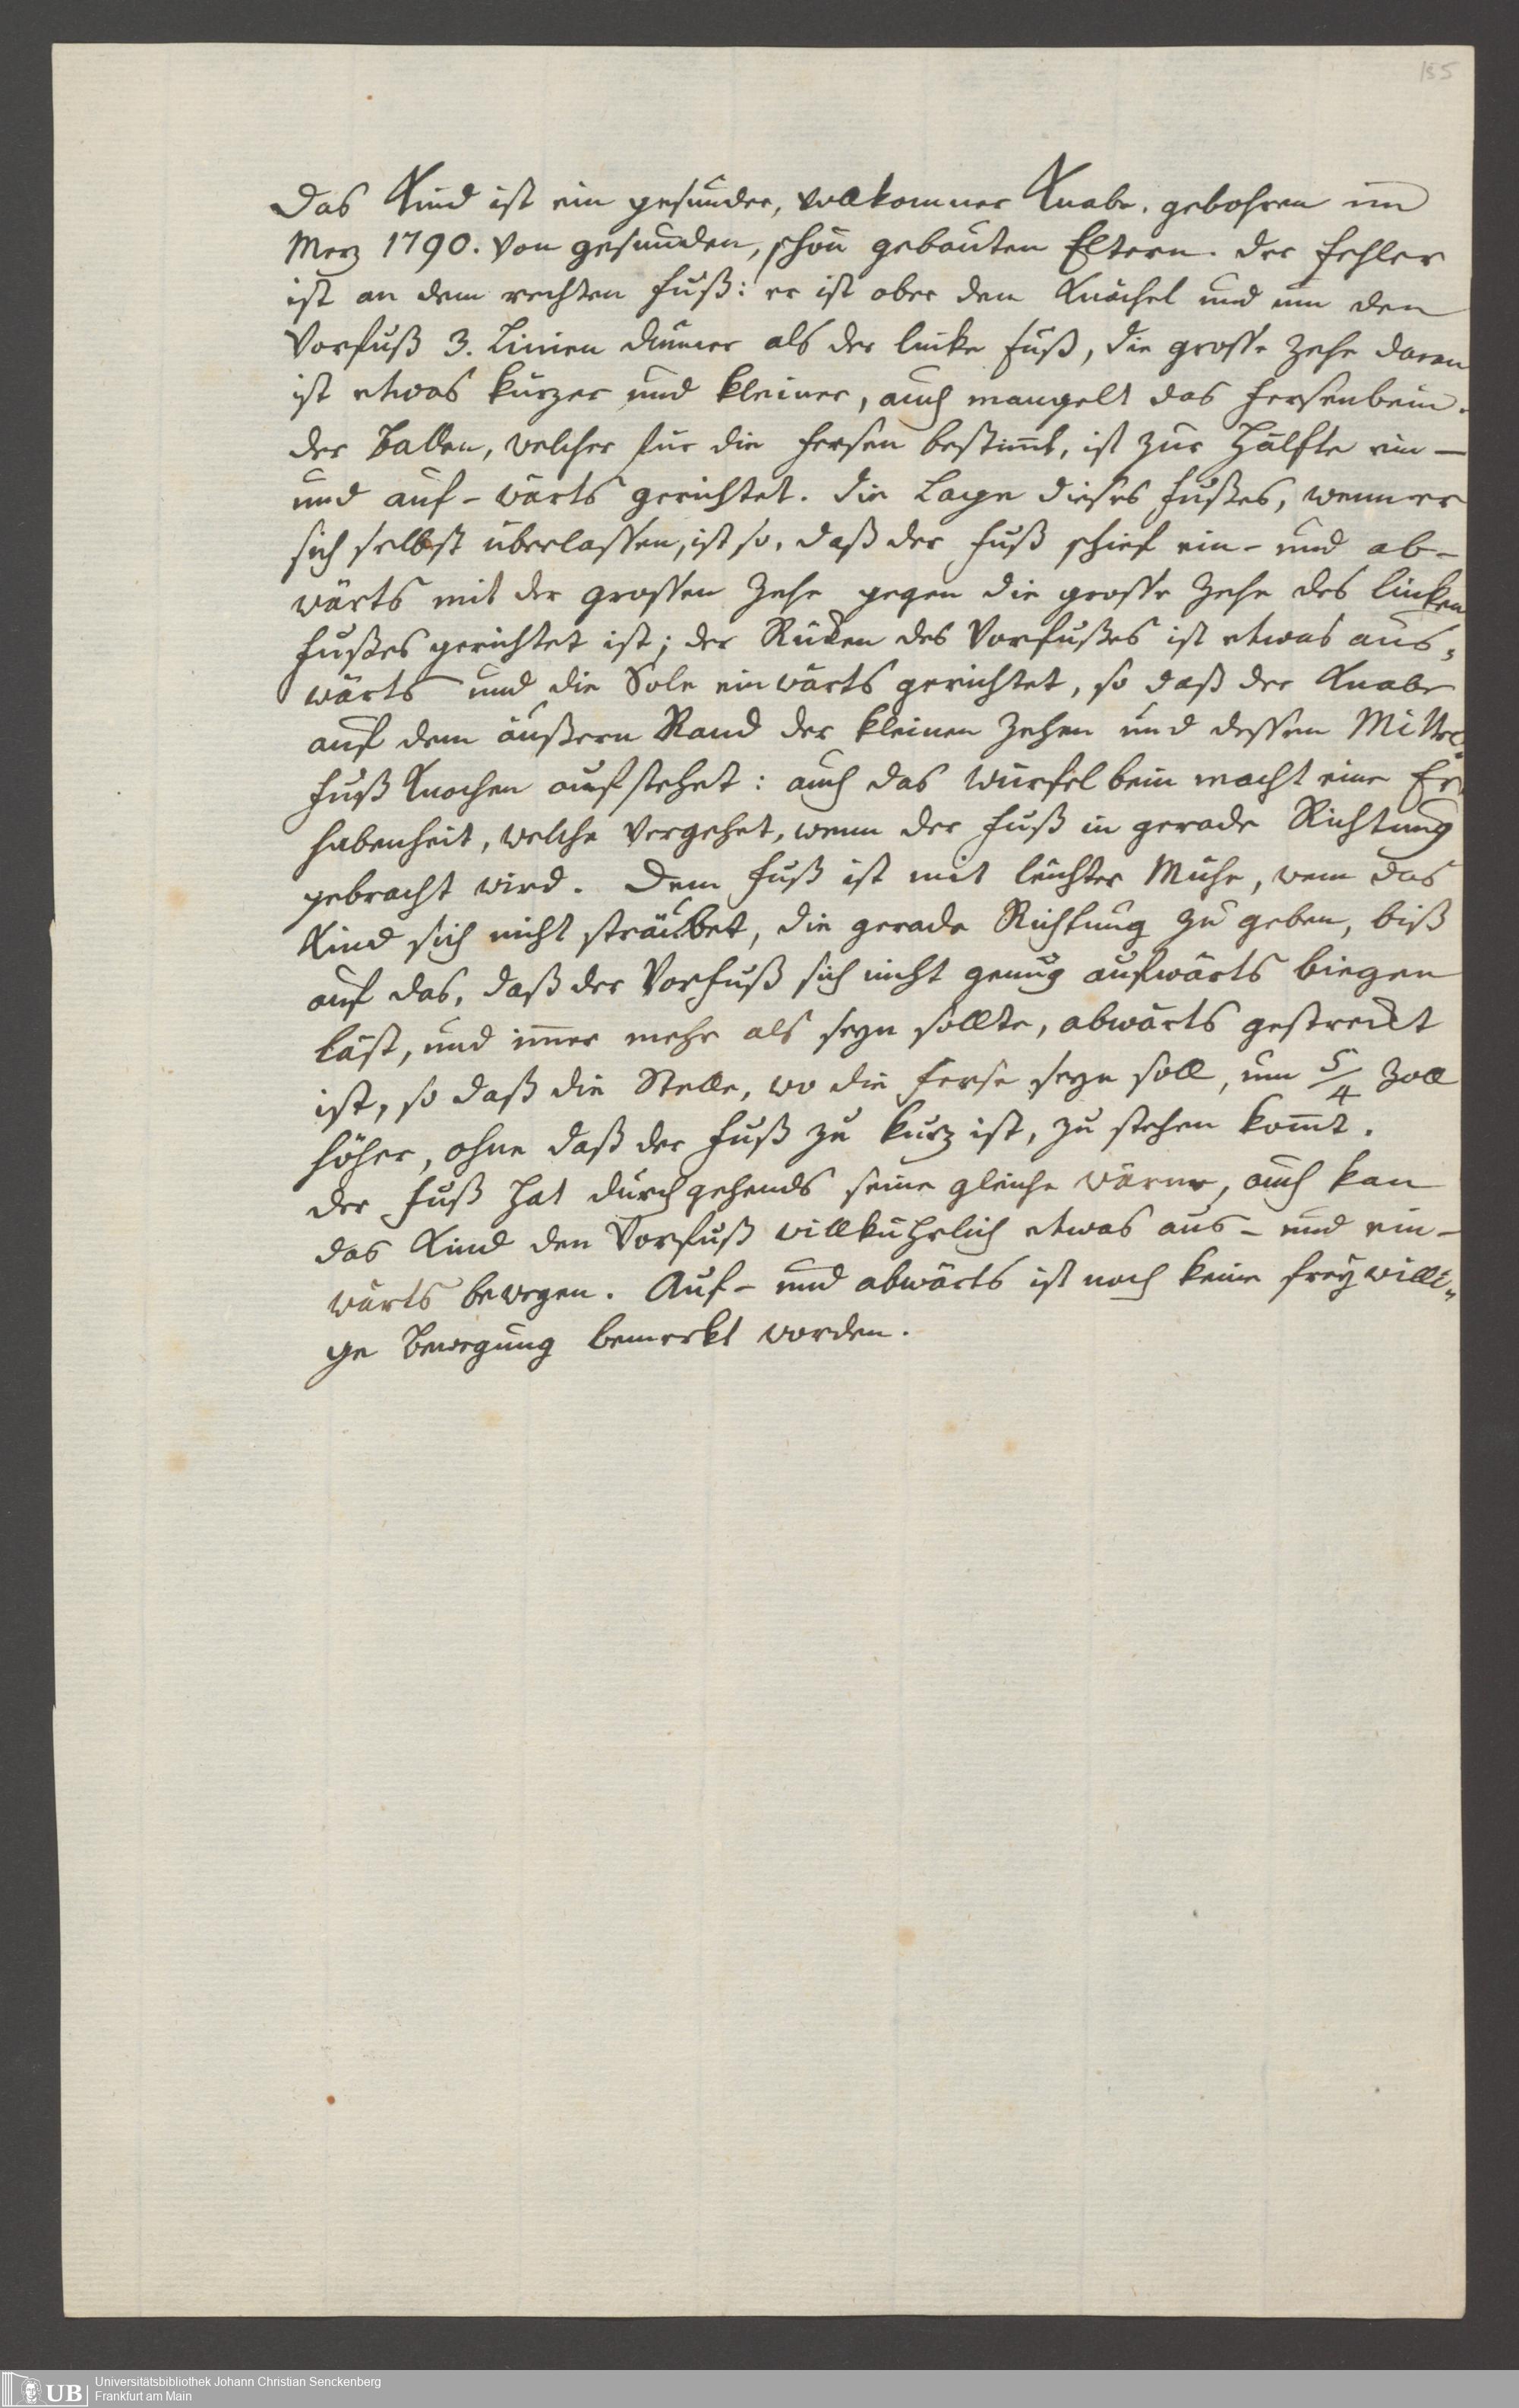 155
Das Kind ist ein gesunder, vollkomner Knabe, gebohren im
Merz 1790. von gesunden, schön gebauten Eltern. der Fehler
ist an dem rechten Fuß: er ist ober dem Knöchel und um den
Vorfuß 3. Linien dünner als der linke Fuß, die grosse Zehe daran
ist etwas kürzer und kleiner, auch mangelt das Fersenbein.
der Ballen, welcher für die Fersen bestim̄t, ist zur Hälfte ein-
und auf-wärts gerichtet. die Lage dieses Fußes, wenn er
sich selbst überlassen, ist so, daß der Fuß schief ein- und ab-
wärts mit der grossen Zehe gegen die grosse Zehe des linken
Fußes gerichtet ist; der Rüken des Vorfußes ist etwas aus-
wärts und die Sole einwärts gerichtet, so daß der Knabe
auf dem äußern Rand der kleinen Zehen und dessen Mittel-
fuß Knochen aufstehet: auch das Würfelbein macht eine Er-
habenheit, welche vergehet, wenn der Fuß in gerade Richtung
gebracht wird. Dem Fuß ist mit leichter Mühe, wenn das
Kind sich nicht sträubet, die gerade Richtung zu geben, biß
auf das, daß der Vorfuß sich nicht genug aufwärts biegen
läst, und im̄er mehr als seyn sollte, abwärts gestreckt
ist, so daß die Stelle, wo die Ferse seyn soll, um 5/4 Zoll
höher, ohne daß der Fuß zu kurz ist, zu stehen kom̄t.
der Fuß hat durchgehends seine gleiche Wärme, auch kan
das Kind den Vorfuß willkührlich etwas aus- und ein-
wärts bewegen. Auf- und abwärts ist noch keine freywilli-
ge Bewegung bemerkt worden.
UB
Universitätsbibliothek Johann Christian Senckenberg
Frankfurt am Main